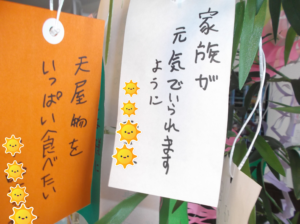 家族が
元気でいられます
ように
天屋物を
いっぱい食べたい